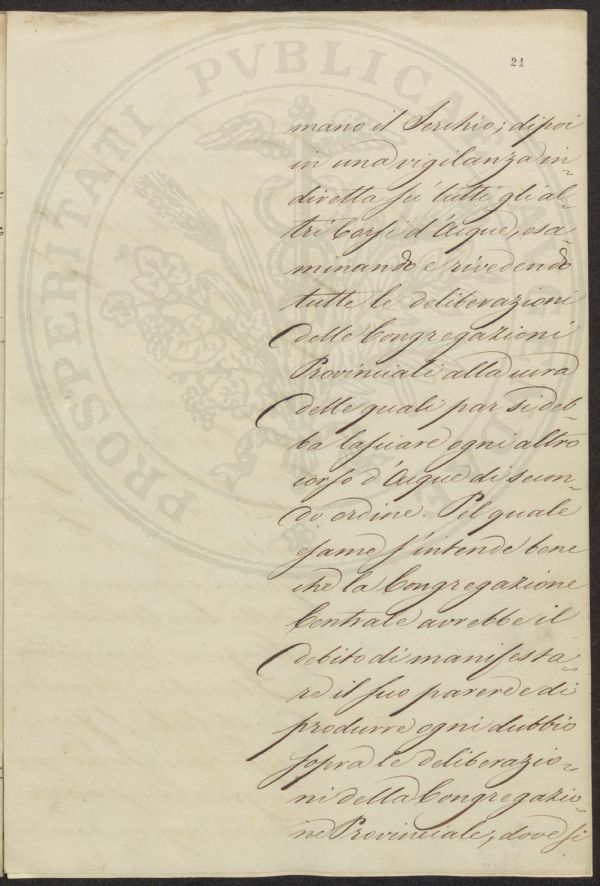 21
mano il Serchio; di poi
in una vigilanza in-
diretta su' tutti gli al-
tri Corsi d'Acque, esa-
minando e rivedendo
tutte le deliberazioni
delle Congregazioni
Provinciali alla cura
delle quali par si deb-
ba lasciare ogni altro
corso d'Acque di secon-
do ordine. Pel quale
esame s'intende bene
che la Congregazione
Centrale avrebbe il
debito di manifesta-
re il suo parere e di
produrre ogni dubbio
sopra le deliberazio-
ni della Congregazio-
ne Provinciale, dove si
PROSPERITATI PVBLICAE